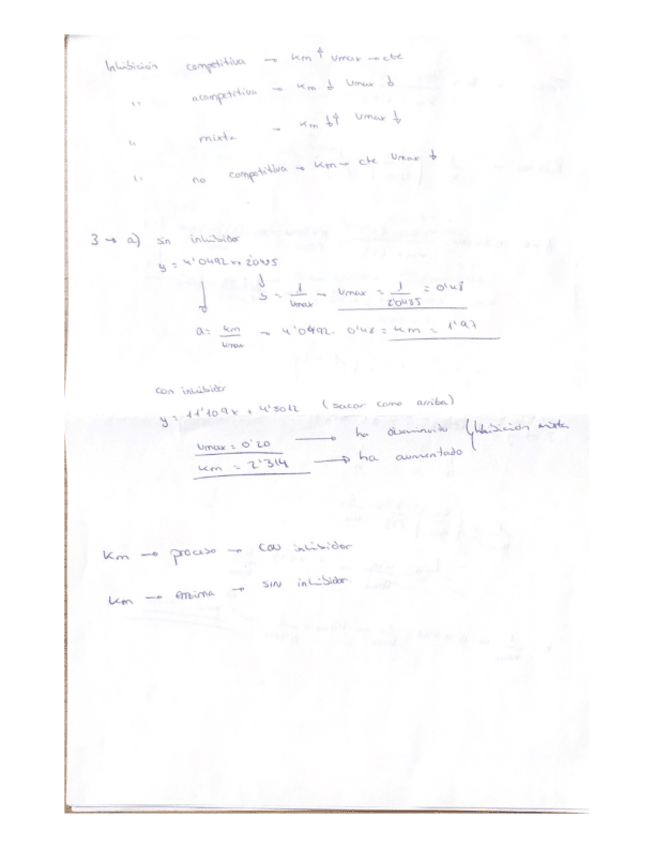 Inhibición competitiva → Km ↑ Vmax → cte
" acompetitiva → Km ↓ Vmax ↓
" mixta → Km ↓↑ Vmax ↓
" no competitiva → Km → cte Vmax ↓
3 → a) sin inhibidor
y = 4'0492x + 2'0485
↓ ↓
b = 1/Vmax → Vmax = 1/2'0485 = 0'48
a = Km/Vmax → 4'0492 · 0'48 = Km = 1'97
con inhibidor
y = 11'109x + 4'8012 (sacar como arriba)
Vmax = 0'20 → ha disminuido
Inhibición mixta
Km = 2'314 → ha aumentado
Km → proceso → con inhibidor
Km → enzima → sin inhibidor